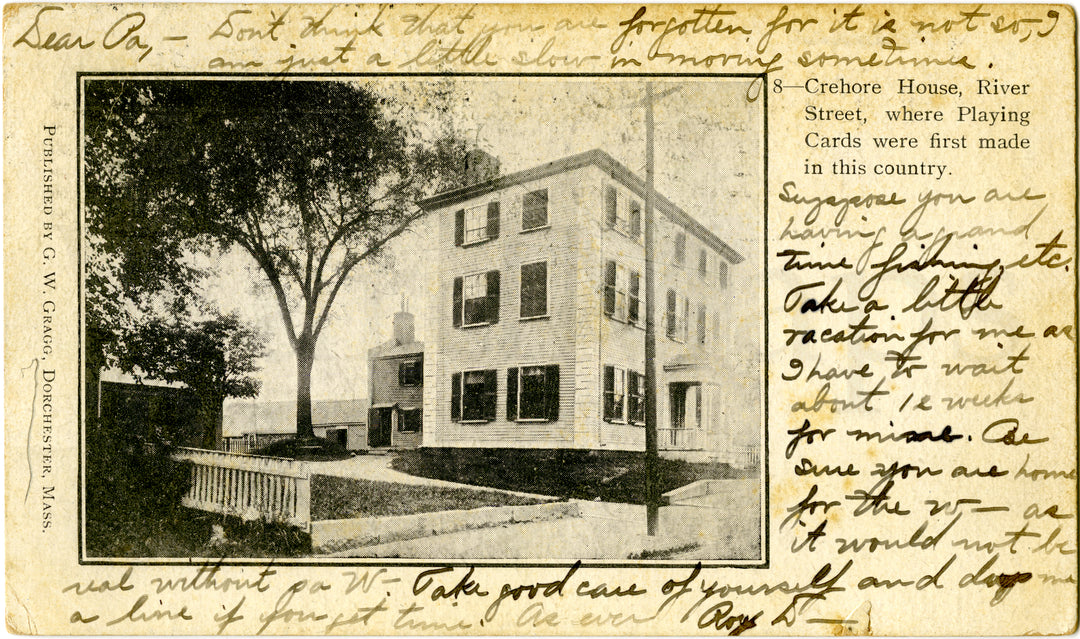 Dear Pa, — Don't think that you are forgotten for it is not so, I
am just a little slow in moving sometimes.
8—Crehore House, River
Street, where Playing
Cards were first made
in this country.
Suppose you are
having a grand
time fishing, etc.
Take a little
vacation for me as
I have to wait
about 12 weeks
for mine. Be
sure you are home
for the W — as
it would not be
real without pa W —. Take good care of yourself and drop me
a line if you get time. As ever Roy D —.
PUBLISHED BY G. W. GRAGG, DORCHESTER, MASS.